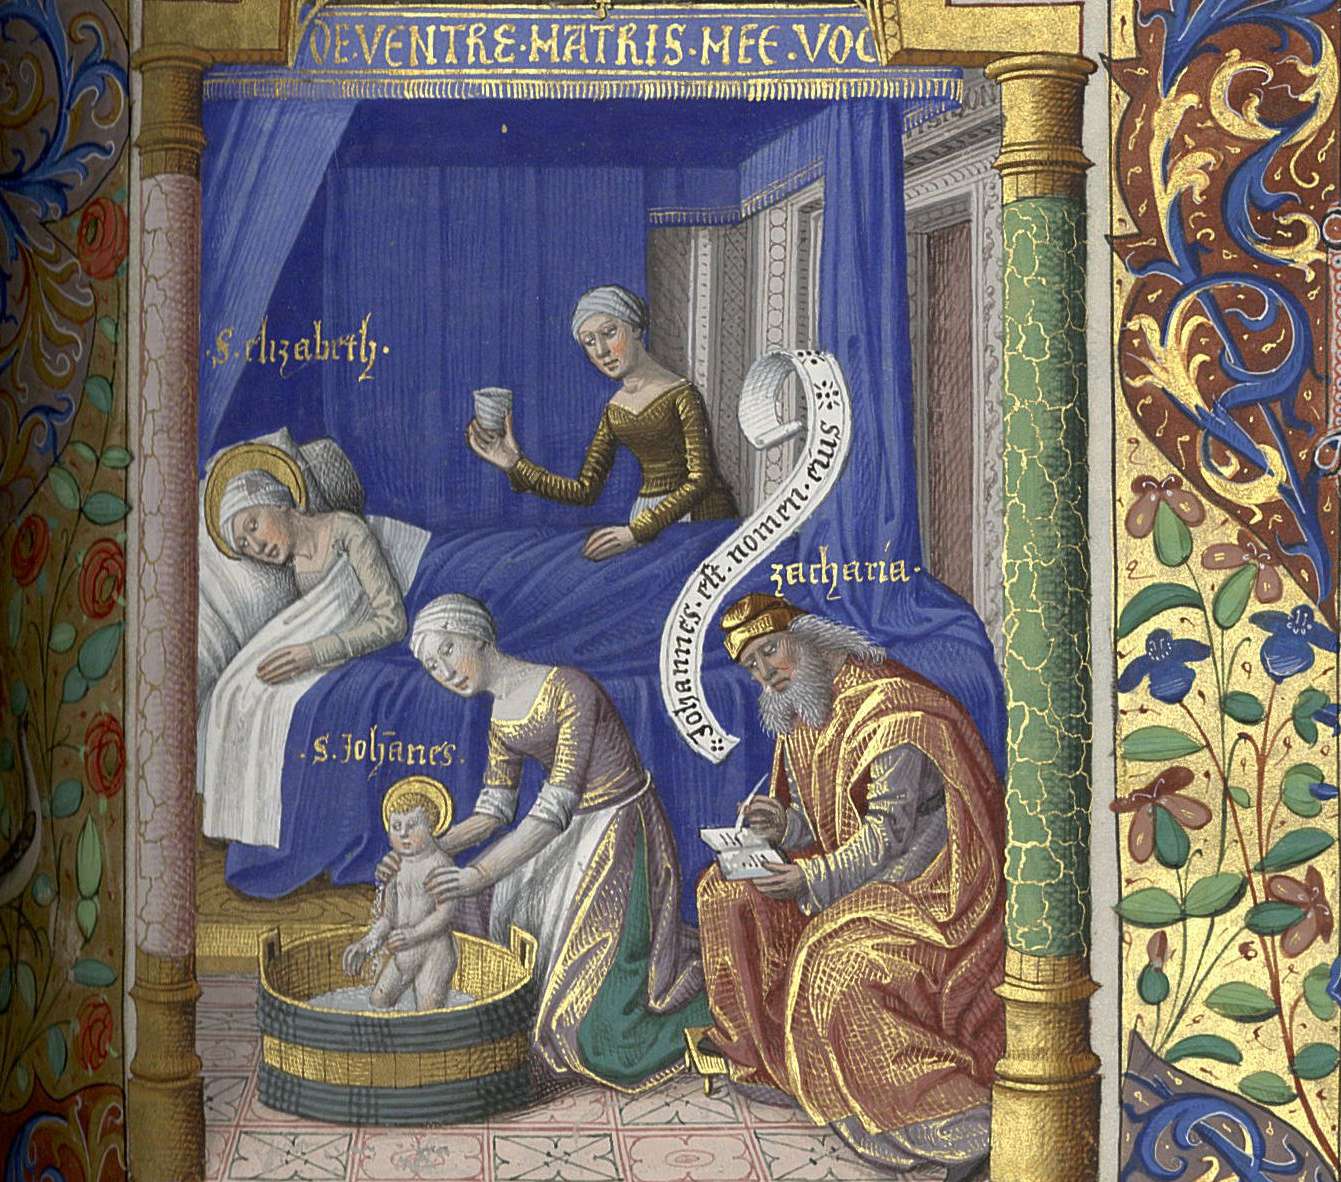 DE·VENTRE·MATRIS·MEE·VOC
·S·elizabeth·
Johannes·est·nomen·eius
zacharia·
·S·Joh̄anes·